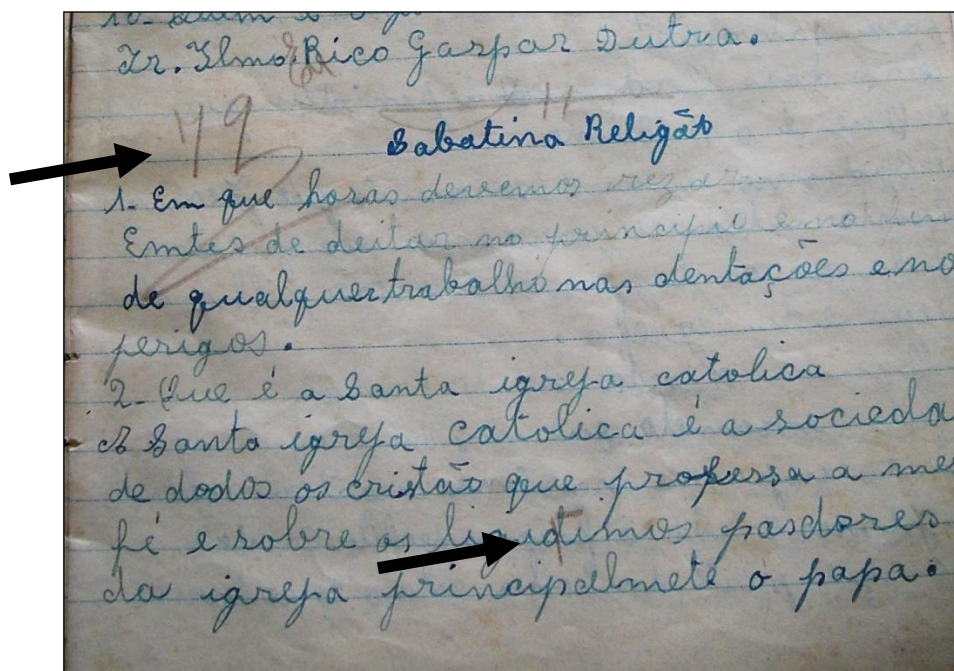 Ir. Ilmo. Rico Gaspar Dutra.
Sabatina Religão
1. Em que horas devemos rezar
Emtes de deitar no principio e no
de qualquer trabalho nas dentações e no
perigos.
2. Que é a Santa igreja catolica
A Santa igreja catolica é a socieda
de dodos os cristão que professa a me
fé e sobre os ligidimos pasdores
da igreja principalmete o papa.